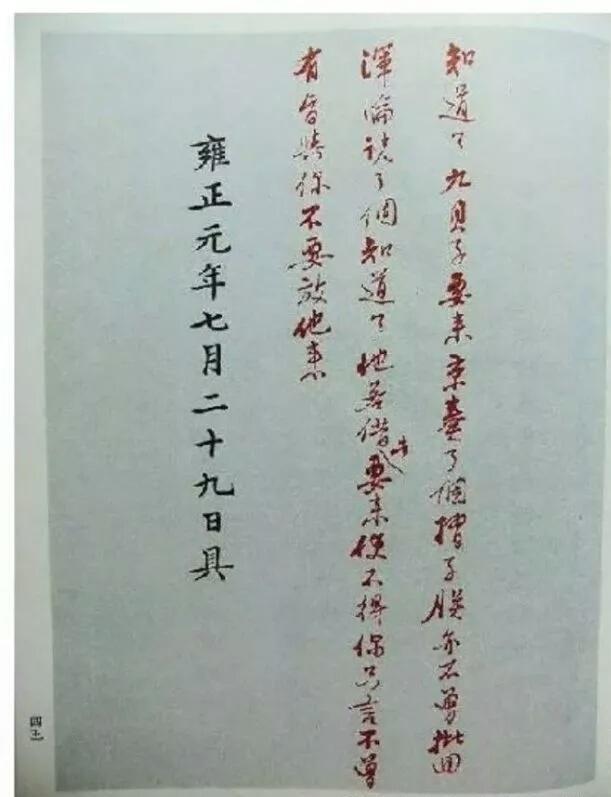 知道了九貝子要来京奏了個摺子朕亦不曾批回
渾淪說了個知道了他若借此要来使不得你只言不曾
有旨與你不要放他来
雍正元年七月二十九日具
四三